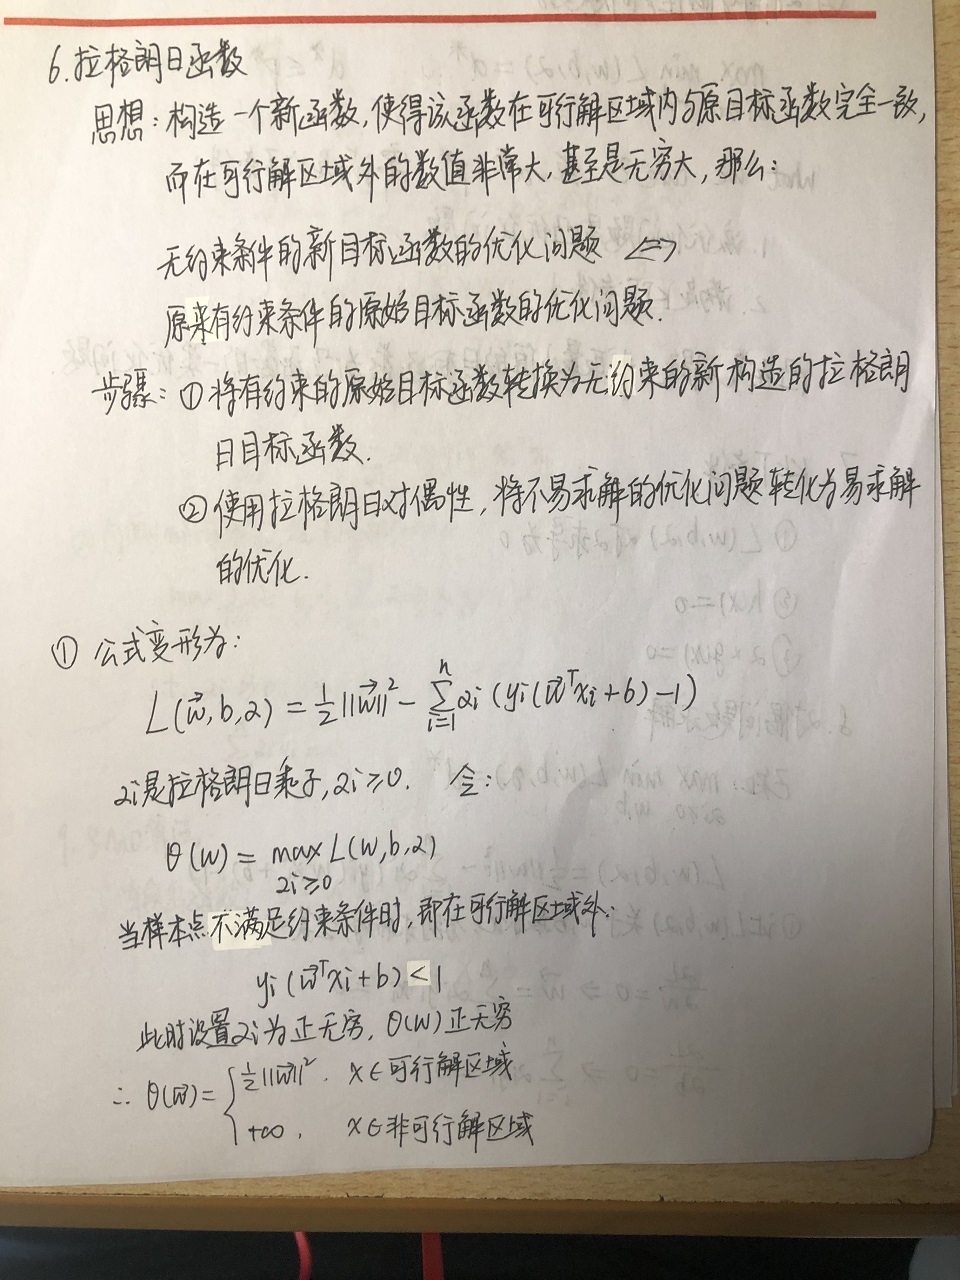 6.拉格朗日函数
思想：构造一个新函数，使得该函数在可行解区域内与原目标函数完全一致，
而在可行解区域外的数值非常大，甚至是无穷大，那么：
无约束条件的新目标函数的优化问题 <=>
原来有约束条件的原始目标函数的优化问题.
步骤：① 将有约束的原始目标函数转换为无约束的新构造的拉格朗
日目标函数.
② 使用拉格朗日对偶性，将不易求解的优化问题转化为易求解
的优化.
① 公式变形为：
L(w⃗,b,α) = ½||w⃗||² - Σᵢ₌₁ⁿ αi (yi(w⃗ᵀxi+b)-1)
αi是拉格朗日乘子，αi≥0. 令：
θ(w) = max L(w,b,α)
αi≥0
当样本点不满足约束条件时，即在可行解区域外：
yi(w⃗ᵀxi+b)<1
此时设置αi为正无穷，θ(w)正无穷
∴ θ(w⃗)= { ½||w⃗||². x∈可行解区域
+∞, x∈非可行解区域